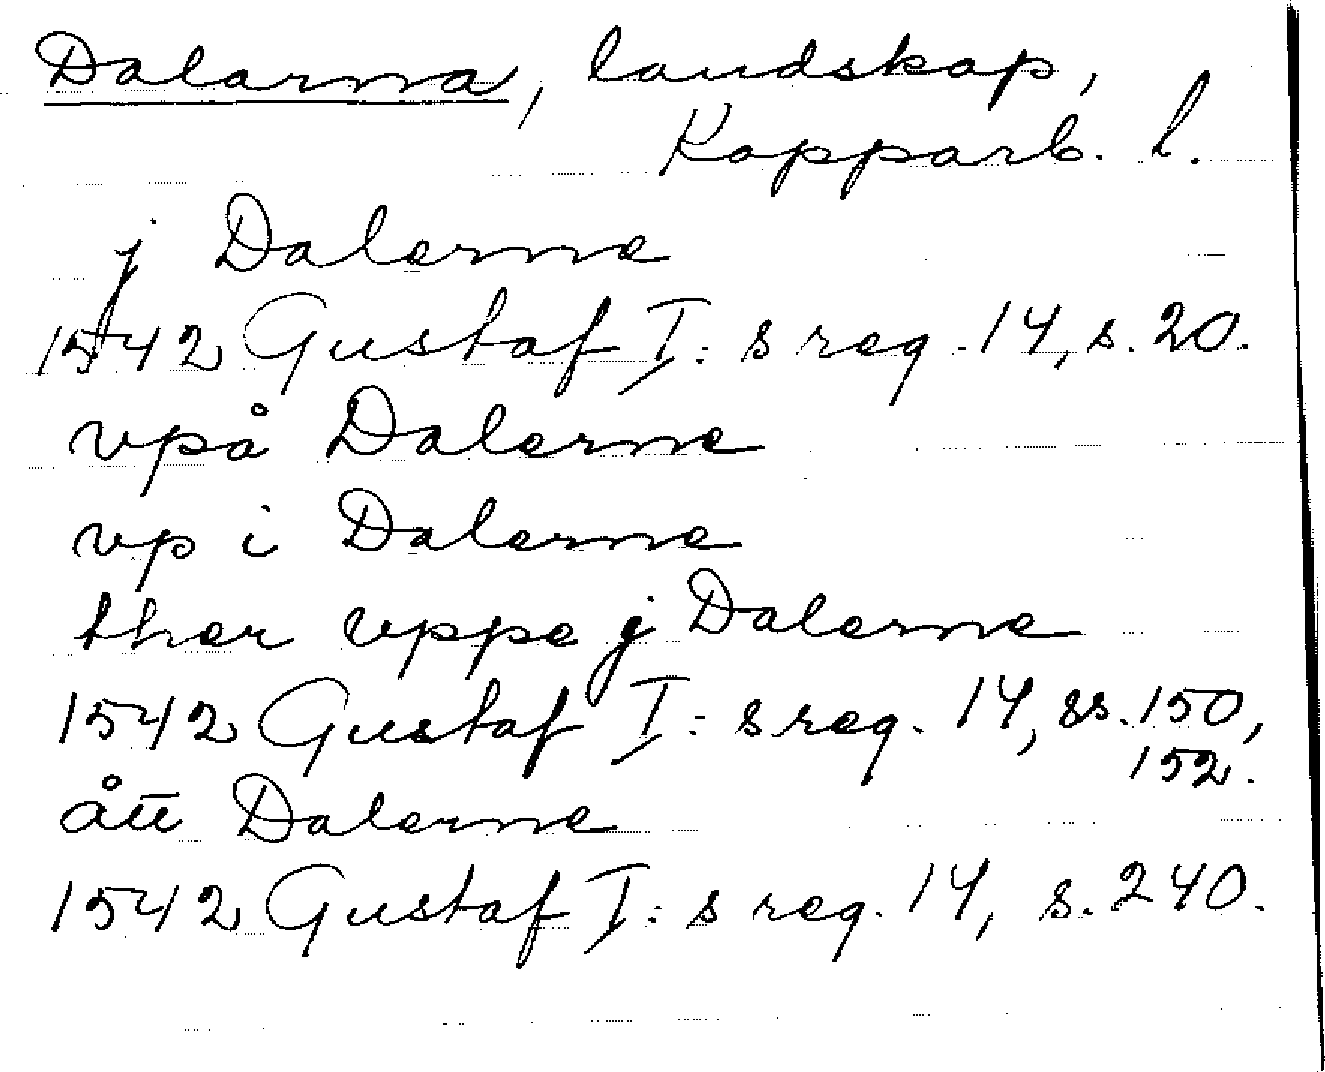 Dalarna, landskap,
Kopparb. l.
j Dalerne
1542 Gustaf I: s reg. 14, s. 20.
vpå Dalerne
vp i Dalerne
ther vppe j Dalerne
1542 Gustaf I: s reg. 14, ss. 150,
152.
ått Dalerne
1542 Gustaf I: s reg. 14, s. 240.